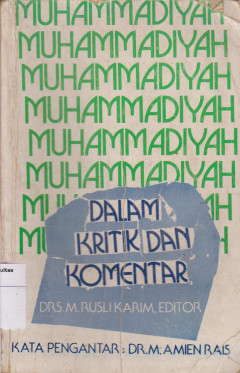 MUHAMMADIYAH
MUHAMMADIYAH
MUHAMMADIYAH
MUHAMMADIYAH
MUHAMMADIYAH
MUHAMMADIYAH
MUHAMMADIYAH
DALAM
KRITIK DAN
KOMENTAR
DRS. M. RUSLI KARIM, EDITOR
KATA PENGANTAR : DR. M. AMIEN RAIS